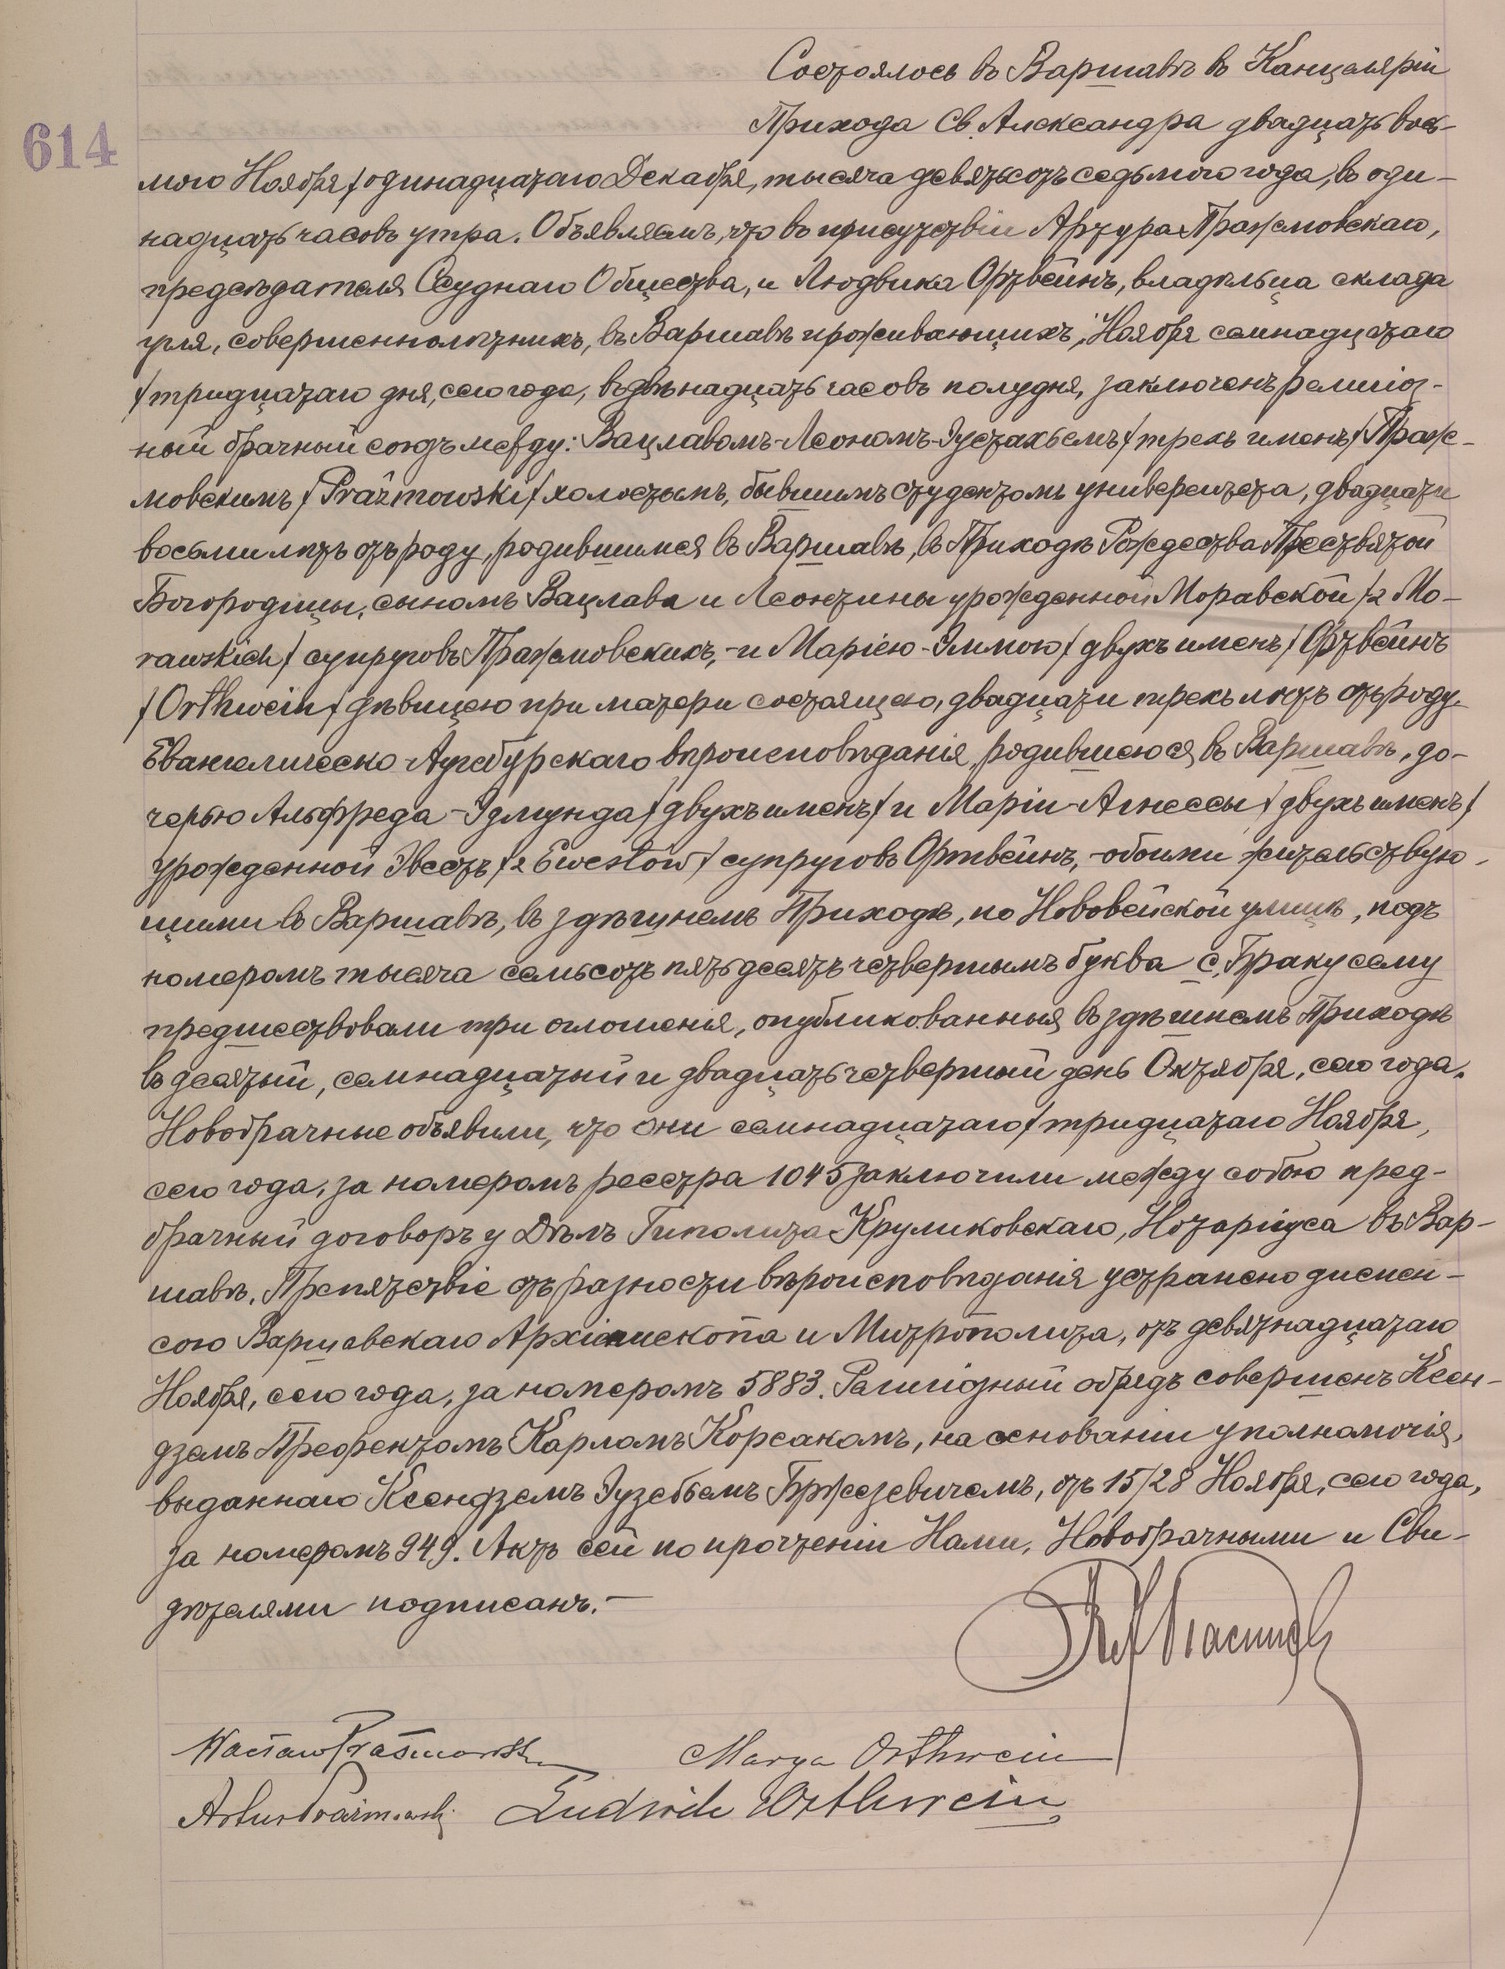 614
Состоялось въ Варшавѣ въ Канцеляріи
Прихода Св. Александра двадцать вось-
мого Ноября /одинадцатаго Декабря, тысяча девятьсотъ седьмого года, въ оди-
надцать часовъ утра. Объявляемъ, что въ присутствіи Артура Пражмовскаго,
предсѣдателя Ссуднаго Общества, и Людвика Ортвейнъ, владѣльца склада
угля, совершеннолѣтнихъ, въ Варшавѣ проживающихъ, Ноября семнадцатаго
/тридцатаго дня, сего года, въ двѣнадцать часовъ полудня, заключенъ религіоз-
ный брачный союзъ между: Вацлавомъ-Леономъ-Эустахьемъ /трехъ именъ/ Праж-
мовскимъ /Prażmowski/ холостымъ, бывшимъ студентомъ университета, двадцати
восьми лѣтъ отъ роду, родившимся въ Варшавѣ, въ Приходѣ Рождества Пресвятой
Богородицы, сыномъ Вацлава и Леонтины урожденной Моравской /z Mo-
rawskich/ супруговъ Пражмовскихъ, - и Маріею-Эммою /двухъ именъ/ Ортвейнъ
/Orthwein/ дѣвицею при матери состоящею, двадцати трехъ лѣтъ отъ роду,
Евангелическо-Аугсбурскаго вѣроисповѣданія, родившеюся въ Варшавѣ, до-
черью Альфреда-Эдмунда /двухъ именъ/ и Маріи-Агнессы /двухъ именъ/
урожденной Эвестъ /z Ewestów/ супруговъ Ортвейнъ, - обоими жительствую-
щими въ Варшавѣ, въ здѣшнемъ Приходѣ, по Нововейской улицѣ, подъ
номеромъ тысяча семьсотъ пятьдесятъ четвертымъ буква с. Браку сему
предшествовали три оглошенія, опубликованныя въ здѣшнемъ Приходѣ
въ десятый, семнадцатый и двадцать четвертый день Октября, сего года.
Новобрачные объявили, что они семнадцатаго /тридцатаго Ноября,
сего года, за номеромъ реестра 1045 заключили между собою пред-
брачный договоръ у Дѣлъ Гиполита Круликовскаго, Нотаріуса въ Вар-
шавѣ. Препятствіе отъ разности вѣроисповѣданія устранено диспен-
сою Варшавскаго Архіепископа и Митрополита, отъ девятнадцатаго
Ноября, сего года, за номеромъ 5883. Религіозный обрядъ совершенъ Ксен-
дземъ Префектомъ Карломъ Корсакомъ, на основаніи уполномочія,
выданнаго Ксендземъ Эузебьемъ Бржезевичемъ, отъ 15/28 Ноября, сего года,
за номеромъ 949. Актъ сей по прочтеніи Нами, Новобрачными и Сви-
дѣтелями подписанъ. -
Wacław Prażmowski Marya Orthwein
Artur Prażmowski Ludwik Orthwein